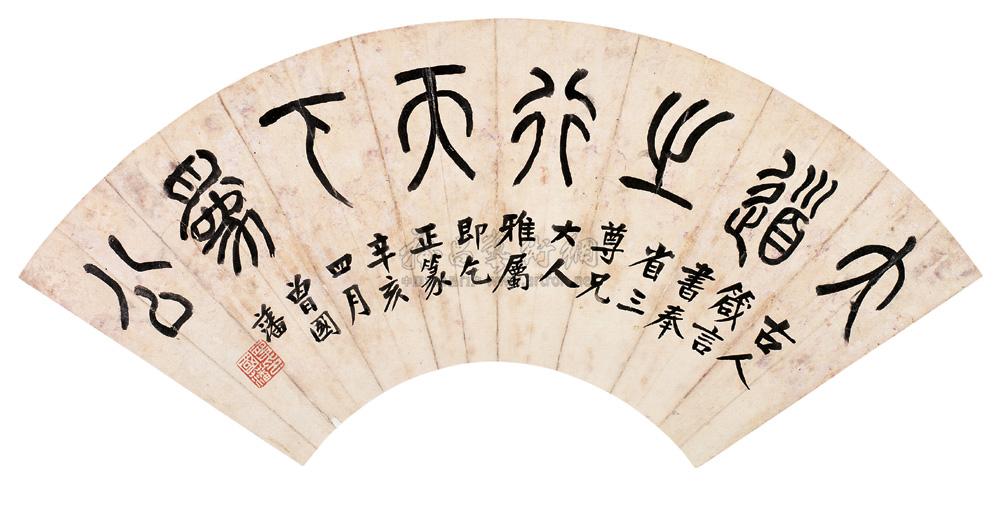 大道之行天下爲公
古人
箴言
書奉
省三
尊兄
大人
雅屬
即乞
正篆
辛亥
四月
曾國
藩